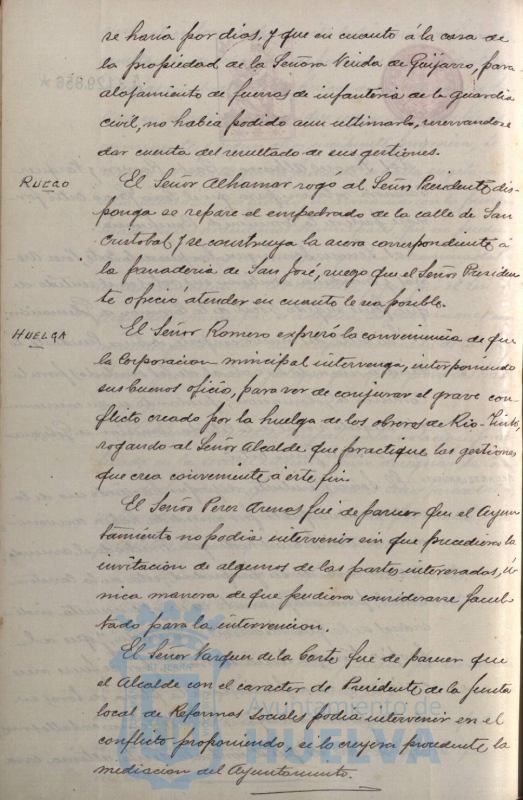 se haria por dias, y que en cuanto á la casa de
la propiedad de la Señora Viuda de Guijarro, para
alojamiento de fuerzas de infanteria de la guardia
civil, no habia podido aun ultimarlo, reservandose
dar cuenta del resultado de sus gestiones.
RUEGO
El Señor Alhamar rogó al Señor Presidente dis-
ponga se repare el empedrado de la calle de San
Cristobal y se construya la acera correspondiente á
la panaderia de San José, ruego que el Señor Presiden-
te ofreció atender en cuanto le sea posible.
HUELGA
El Señor Romero expresó la conveniencia de que
la Corporacion municipal intervenga, interponiendo
sus buenos oficio, para ver de conjurar el grave con-
flicto creado por la huelga de los obreros de Rio-Tinto,
rogando al Señor Alcalde que practique las gestiones
que crea conveniente á este fin.
El Señor Perez Arenas fué de parecer que el Ayun-
tamiento no podia intervenir sin que precediera la
invitacion de algunos de las partes interesadas, ú-
nica manera de que pudiera considerarse facul-
tado para la intervencion.
El Señor Vazquez de la Corte fue de parecer que
el Alcalde con el caracter de Presidente de la Junta
local de Reformas Sociales podia intervenir en el
conflicto proponiendo, si lo creyera procedente la
mediacion del Ayuntamiento.
Ayuntamiento de
HUELVA